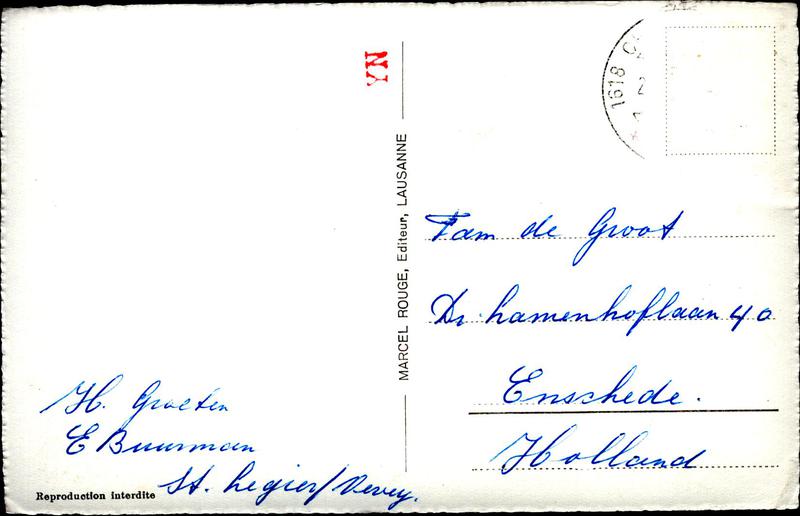 H. Groeten
E Buurman
St. Legier/Vevey.
Reproduction interdite
YN
MARCEL ROUGE, Editeur, LAUSANNE
1618
Fam de Groot
Dr. hamenhoflaan 40
Enschede.
Holland